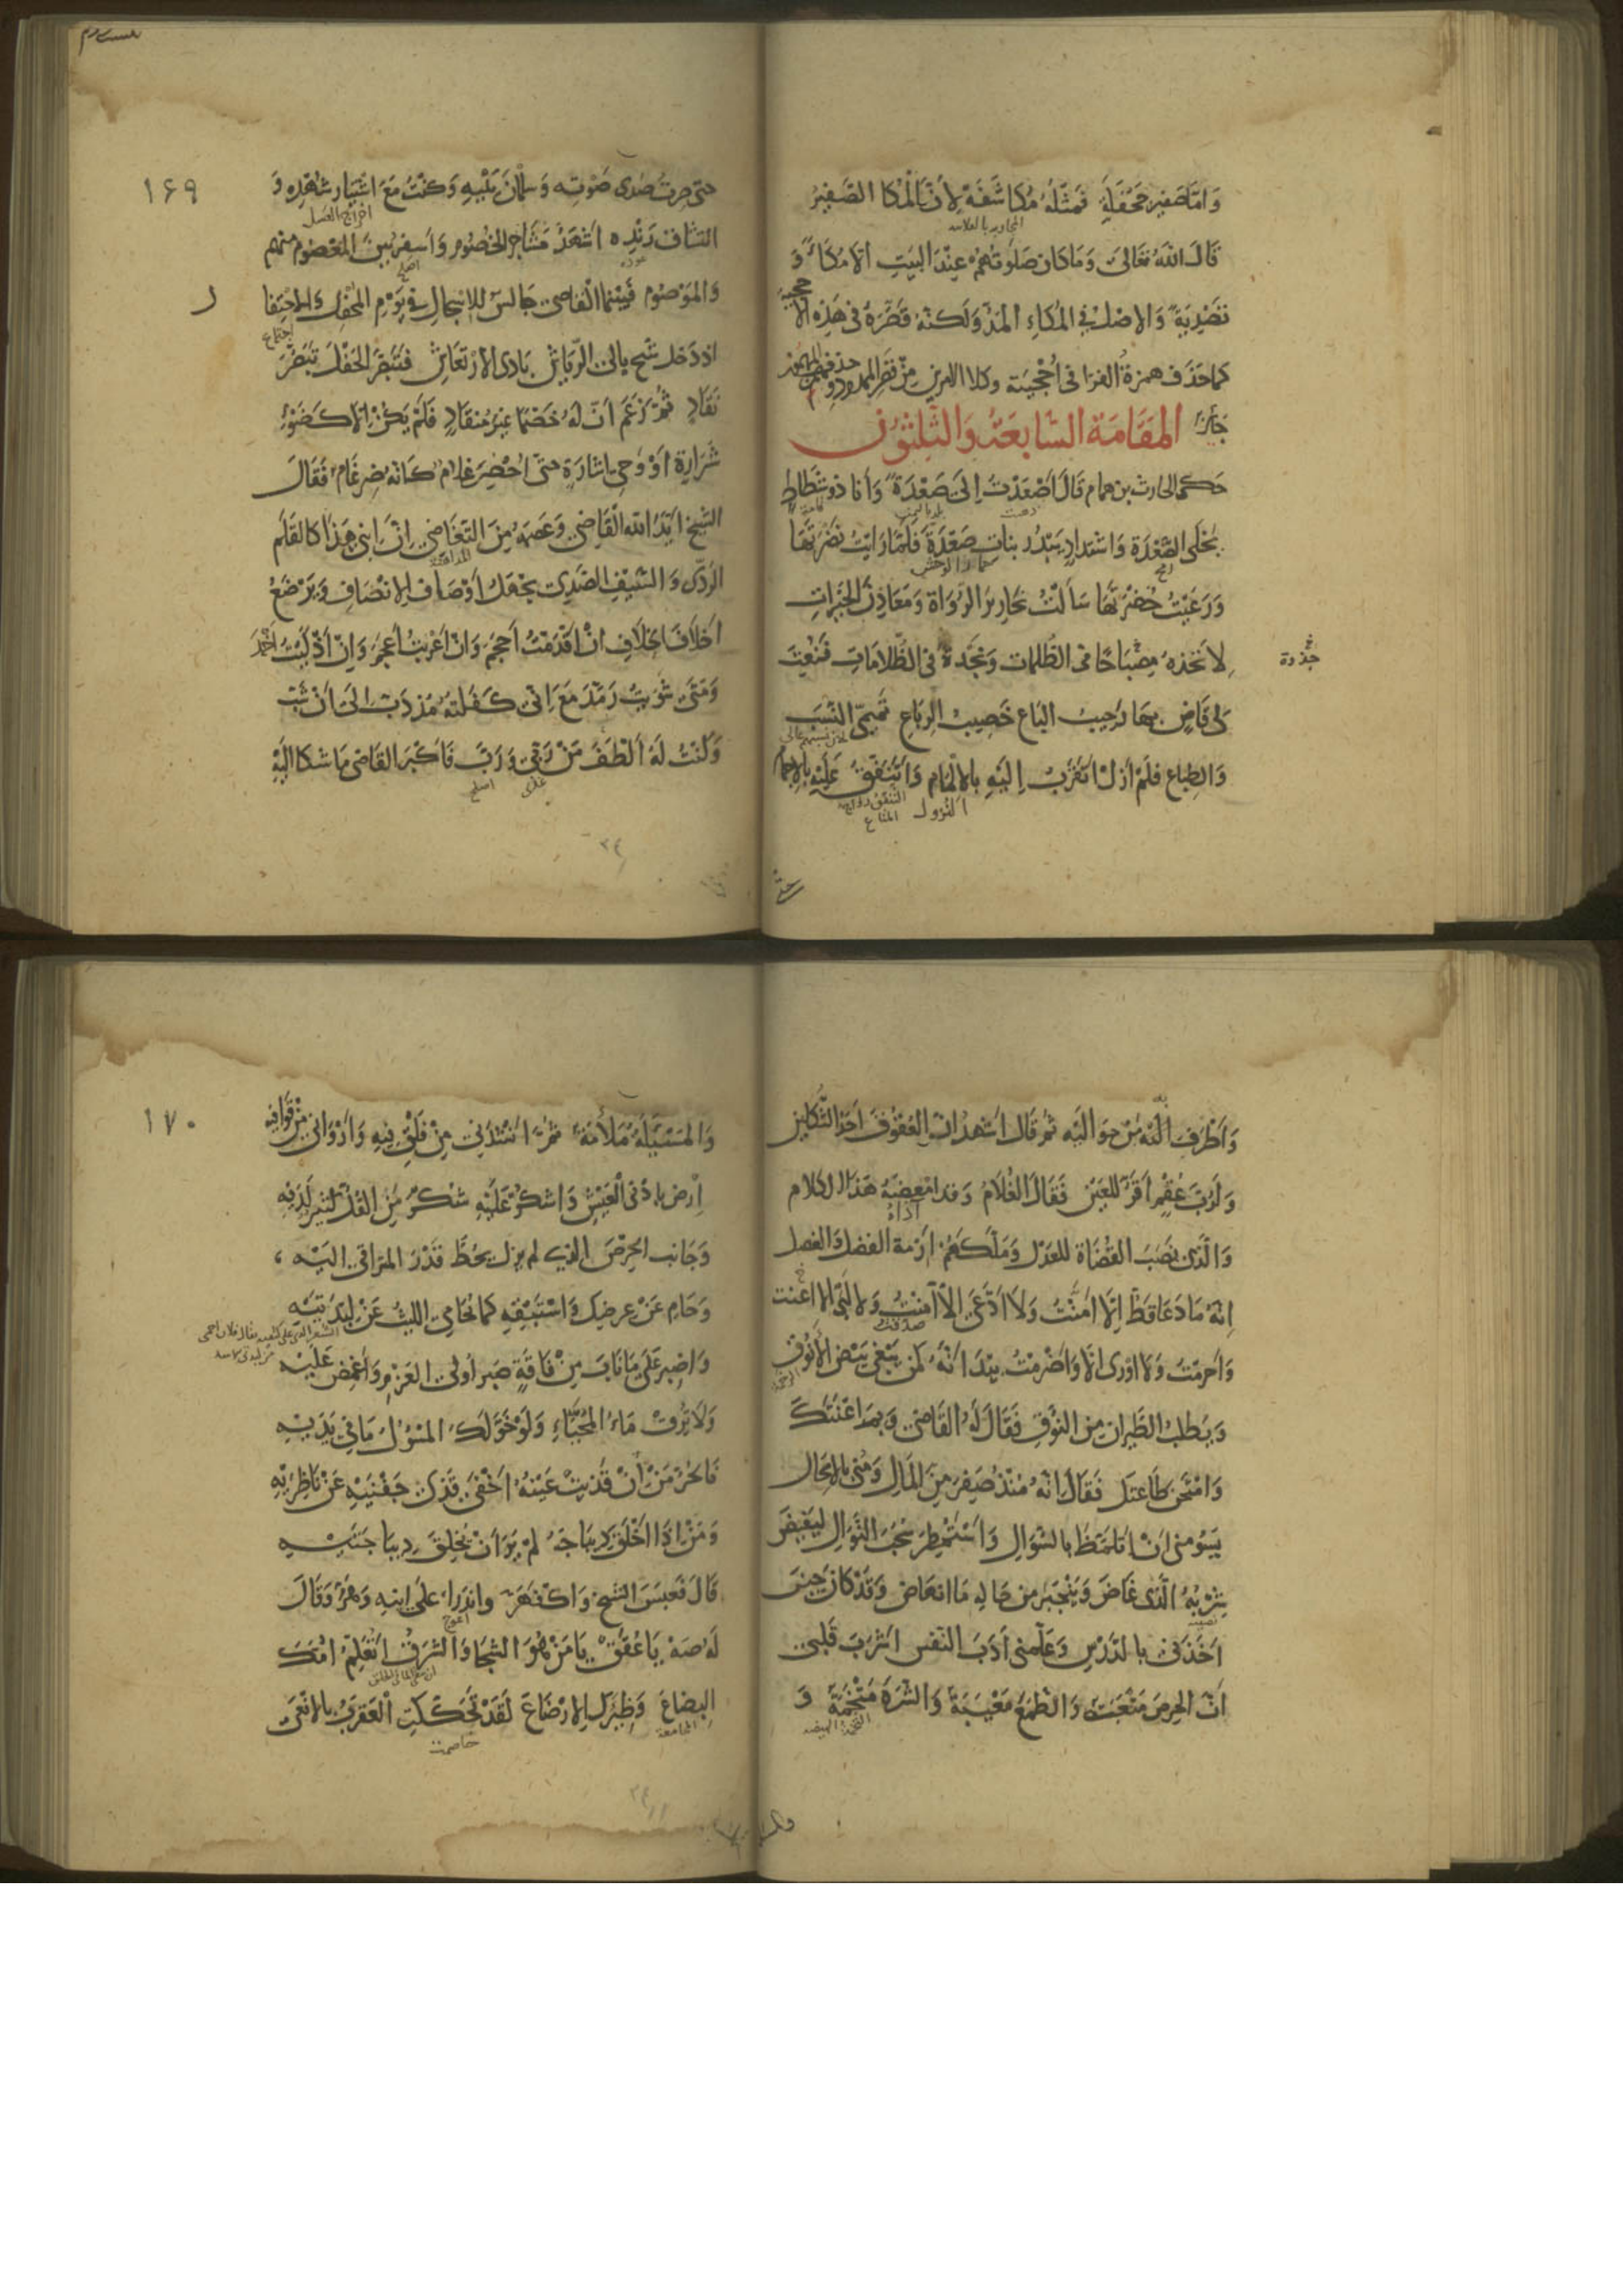 وَامّا صَفِير جَحْفَلَةٍ فَمِثْلُهُ مُكاشَفَةٌ لِأَنّ الْمُكا الصَّفِيرُ
قَالَ اللهُ تَعَالَى وَمَا كَانَ صَلَوتُهُمْ عِنْدَ البَيْتِ اِلّا مُكَاءً وَ
تَصْدِيَةً وَالاصْلُ فِي المُكَاءِ المَدُّ وَلَكِنّهُ قَصَرَهُ فى هَذِهِ الاُحجيّة
كما حَذَف همزةُ الفرَا فى اُحْجِيَته وكلا الامرين مِنْ قَصْر الممدود و حذف همزة المهموز
جَائِز المَقَامَة السَّابِعَةُ وَالثَّلٰثُون
حكى الحارث بن همام قَالَ اَصْعَدْتُ اِلَى صَعْدَةَ وَأنا ذو شَطَاطٍ
يَحْكى الصَّعْدَة وَاشتِدادٍ يَبْدُر بناتِ صَعْدَةَ فَلَمّا رَايْتُ نَضْرَتَهَا
وَرَعَيْتُ خُضْرَتَها سَألْتُ نَحَارِيرَ الرُّوَاةِ وَمَعَادِنَ الخَيْرَاتِ
لِاَتَّخِذهُ مِصْبَاحًا فى الظُّلمات وَنَجْدَةً فى الظُّلَامَاتِ فَنُعِتَ
جذوة
لِى قَاضٍ بِهَا رَحِيبُ البَاعِ خَصِيبُ الرِبَاعِ تَمِيمِىّ النَسَبِ
وَالطِبَاعِ فَلَمْ اَزَلْ اَتَقَرَّبُ اِلَيْهِ بالاِلْمَامِ وَاَتَنَفَّقُ عَلَيْهِ بِالاِجْمَامِ
النزول
١۶٩
حتى صِرتُ صَدى صَوْتِه وَسلمانَ بَيْتِهِ وَكُنْتُ مَعَ اشْتِيَار شُهْدِه وَ
اخراج العسل
انتشاق رَنْدِه اَشْهَدُ مَشَاجِر الخُصُومِ وَاَسْفِرُ بَيْنَ المَعْصُوم منهم
وَالمَوْصُوم فَبَيْنَمَا القاضِى جَالِسٌ للاِسْجَالِ فى يَوْمِ المَحْفِل وَالاِحْتِفَا
اذ دَخل شَيخ بالى الرِّيَاش بَادى الارْتِعَاش فَتَبَصَّرَ الحَفْلَ تَبَصُّرَ
نَقّادٍ ثُمَّ زَعَمَ انّ لَهُ خَصْمًا غَيْرَ مُنقَادٍ فَلَمْ يَكُنْ اِلّا كَضَوْءِ
شَرَارةٍ اَوْ وَحِى اِشَارَةٍ حتّى اُحْضِرَ غلامٌ كَانّه ضِرغَامٌ فَقَالَ
الشيخ ايَّدَ الله القَاضِىَ وَعَصَمَهُ مِنَ التَغَاضِى اِنّ اِبنى هَذَا كالقَلَمِ
الرَدّى وَالسَيْفِ الصَّدِى يَجْهَلُ اَوْصَافَ الاِنْصَافِ وَيَرْضَعُ
اَخلَافَ الخِلَافِ اِنْ اَقْدَمْتُ اَحجَمَ وَاِنْ اَعْرَبْتُ اَعجَمَ وَاِنْ اَذْكَيْتُ اَخْمَدَ
وَمَتَى شَوَيْتُ رَمَّدَ مَعَ اَنِّى كَفَلْتُه مُذْ دَبَّ اِلَى اَنْ شَبَّ
وَكُنْتُ لَهُ اَلْطَفَ مَنْ رَبّى وَرَبَّ فَاَكْبَرَ القَاضى مَا شَكا اِلَيْهِ
وَاَطْرَف بِه مَنْ حَوَالَيْه ثم قَالَ اَشْهَدُ انّ العُقُوقَ اَحَدُ الثُّكلَيْن
وَلَرُبَّ عُقْمٍ اَقَرُّ لِلعَيْن فَقَالَ الغُلَامُ وَقد امْعَضَهُ هَذَا الكلام
وَالّذى نصَبَ القُضَاةَ للعَدْلِ وَمَلّكَهُمْ اَزِمّة الفَضل وَالفَصل
اِنّهُ مَا دَعَا قَطُّ اِلّا اَمَّنْتُ وَلَا ادّعَى اِلّا آمَنْتُ وَلا لَبّى اِلّا
وَاَحْرَمْتُ وَلا اَوْرَى اِلّا وَاَضْرَمْتُ بَيْدَ انّهُ كَمَن يَبْغِى بَيْضَ الاَنُوقِ
وَيَطلُب الطَيَران من النُوقِ فَقَالَ لَهُ القَاضى وَبِمَ اَعْنَتَكَ
وَامْتَحَنَ طَاعتك فَقَالَ انّهُ مُنذُ صَفِرَ مِنَ المَالِ وَمُنِىَ بالاِمْحَال
يَسُومنى انْ اَتلمّظَ بالسُوَالِ وَاَسْتَمْطِرَ سُحُبَ النَّوَالِ لِيَفِيضَ
شِرْبُهُ الّذى غَاضَ وَيَنْجَبِرَ مِن حَالِه مَا انْهَاضَ وَقَدْ كَانَ حِينَ
اَخَذَنى بالدَّرْسِ وَعَلّمنى اَدَبَ النَفْس اَشْرَبَ قَلْبى
اَنّ الحِرصَ مَتْعَبَةٌ وَالطَّمَعَ مَعْيَبَةٌ وَالشَرَهَ مَتْخَمَةٌ وَ
١٧٠
وَالمَسْئَلَةَ مَلْأَمَةٌ ثُمَّ اَنْشَدَنى مِنْ فَلْقِ فِيهِ وَاَرْوَانى مِنْ قَوَافِيهِ
اِرْضَ بِاَدْنَى العَيْشِ وَاشكُرْ عَلَيْهِ شُكْرَ مَن القُلُّ كَثِيرٌ لَدَيْهِ
وَجَانِبِ الحِرْصَ الذِى لم يزل يحُطُّ قَدْرَ المَرَاقِى اِلَيْهِ
وَحَامِ عَنْ عِرضِكَ وَاسْتَبْقِهِ كمَا يُحَامِى اللَيْثُ عَنْ لِبْدَتَيْهِ
وَاصْبِر عَلَى مَا نَابَ مِنْ فَاقَةٍ صَبرَ اُولِى العَزْمِ وَاَغْمِضْ عَلَيْهِ
وَلَا تُرِقْ مَاءَ المُحَيَّاءِ وَلَوْ خَوَّلَكَ المَسْؤُلُ مَا فِى يَدَيْهِ
فَالحُرُّ مَنْ اِنْ قَذِيَتْ عَيْنُهُ اَخْفَى قَذَى جَفْنَيْهِ عَنْ نَاظِرَيْهِ
وَمَنْ اِذَا اَخْلَقَ دِيبَاجَهُ لَمْ يَرَ اَنْ يُخلِقَ دِيبَاجَتَيْهِ
قَالَ فَعَبَسَ الشيخ وَاكْفَهَرّ وانْدَرَاَ عَلَى ابْنِهِ وَهَرَّ وَقَالَ
لَه صَهْ يَا عُقَقُ يَا مَنْ هُوَ الشَجَا وَالشَرَقُ اَتُعَلِّمُ اُمَّكَ
البِضَاعَ وَظِئْرَكَ الاِرْضَاعَ لَقَدْ تَحَكَّكَتِ العَقرَبُ بالاَفْعَى